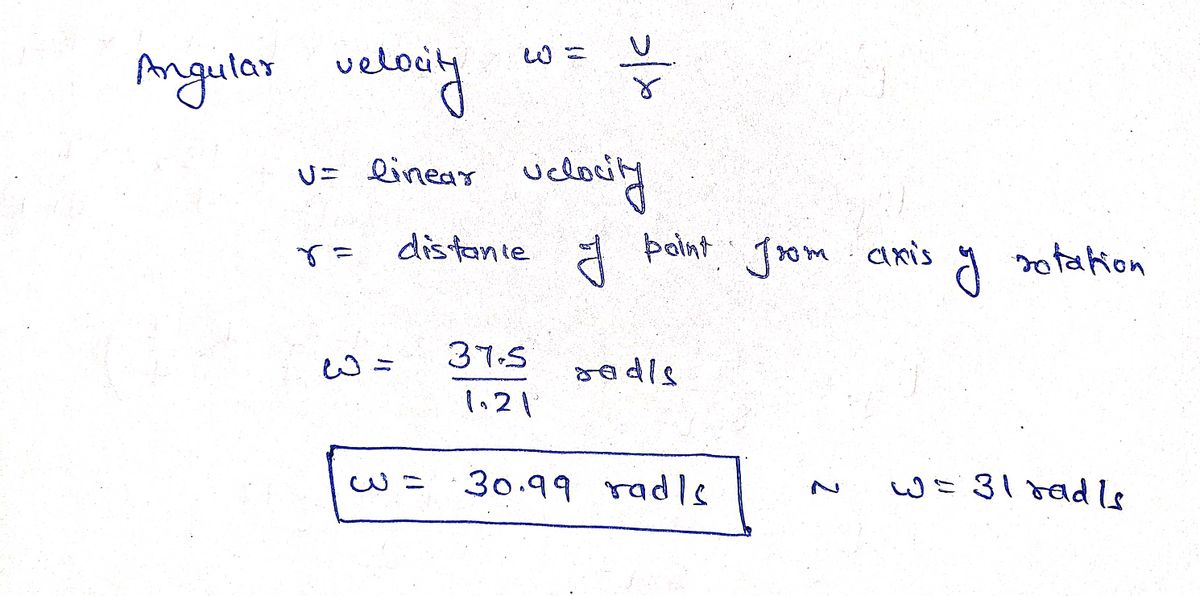 Angular velocity ω = v/r
v = linear velocity
r = distance of point from axis of rotation
ω = 37.5/1.21 rad/s
ω = 30.99 rad/s ~ ω = 31 rad/s